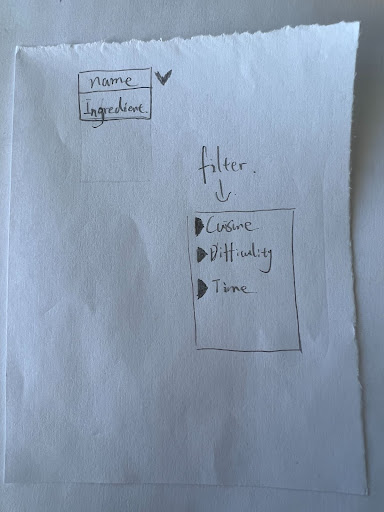 name
Ingredient.
filter.
Cuisine
Difficulity
Time